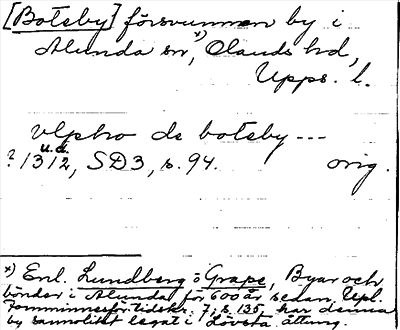 [Bołeby] försvunnen by i
Alunda sn, *) Olands hd,
Upps. l.
vlpho de bołeby ---
? 1312, u.d. SD3, s. 94. orig.
*) Enl. Lundberg o Grape, Byar och
bönder i Alunda för 600 år sedan, Upl.
Fornminnesför. tidskr. 7, s. 135, har denna
by sannolikt legat i Lövsta åttung.